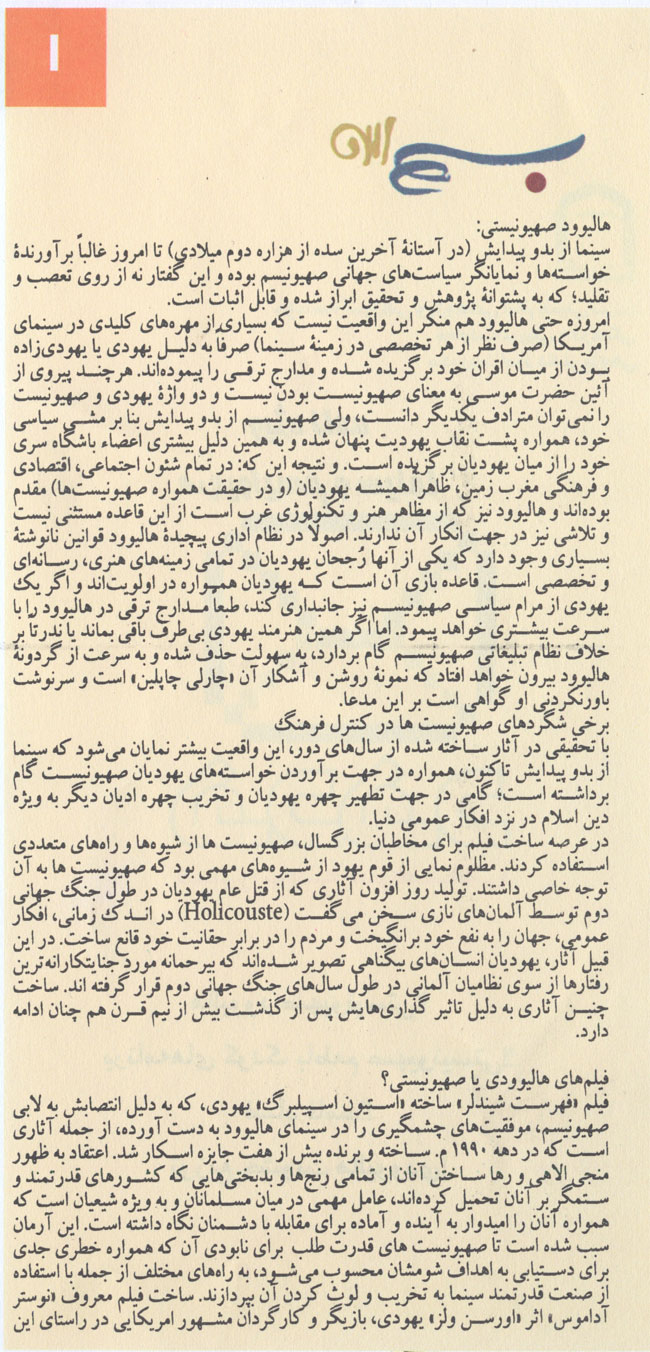 ۱
بسم الله
هالیوود صهیونیستی:
سینما از بدو پیدایش (در آستانهٔ آخرین سده از هزاره دوم میلادی) تا امروز غالباً برآورندهٔ
خواسته‌ها و نمایانگر سیاست‌های جهانی صهیونیسم بوده و این گفتار نه از روی تعصب و
تقلید؛ که به پشتوانهٔ پژوهش و تحقیق ابراز شده و قابل اثبات است.
امروزه حتی هالیوود هم منکر این واقعیت نیست که بسیاری از مهره‌های کلیدی در سینمای
آمریکا (صرف نظر از هر تخصصی در زمینهٔ سینما) صرفاً به دلیل یهودی یا یهودی‌زاده
بودن از میان اقران خود برگزیده شده و مدارج ترقی را پیموده‌اند. هرچند پیروی از
آئین حضرت موسی به معنای صهیونیست بودن نیست و دو واژهٔ یهودی و صهیونیست
را نمی‌توان مترادف یکدیگر دانست، ولی صهیونیسم از بدو پیدایش بنا بر مشی سیاسی
خود، همواره پشت نقاب یهودیت پنهان شده و به همین دلیل بیشتری اعضاء باشگاه سری
خود را از میان یهودیان برگزیده است. و نتیجه این که: در تمام شئون اجتماعی، اقتصادی
و فرهنگی مغرب زمین، ظاهراً همیشه یهودیان (و در حقیقت همواره صهیونیست‌ها) مقدم
بوده‌اند و هالیوود نیز که از مظاهر هنر و تکنولوژی غرب است از این قاعده مستثنی نیست
و تلاشی نیز در جهت انکار آن ندارند. اصولاً در نظام اداری پیچیدهٔ هالیوود قوانین نانوشتهٔ
بسیاری وجود دارد که یکی از آنها رُجحان یهودیان در تمامی زمینه‌های هنری، رسانه‌ای
و تخصصی است. قاعده بازی آن است که یهودیان همواره در اولویت‌اند و اگر یک
یهودی از مرام سیاسی صهیونیسم نیز جانبداری کند، طبعاً مدارج ترقی در هالیوود را با
سرعت بیشتری خواهد پیمود. اما اگر همین هنرمند یهودی بی‌طرف باقی بماند یا ندرتاً بر
خلاف نظام تبلیغاتی صهیونیسم گام بردارد، به سهولت حذف شده و به سرعت از گردونهٔ
هالیوود بیرون خواهد افتاد که نمونهٔ روشن و آشکار آن «چارلی چاپلین» است و سرنوشت
باورنکردنی او گواهی است بر این مدعا.
برخی شگردهای صهیونیست ها در کنترل فرهنگ
با تحقیقی در آثار ساخته شده از سال‌های دور، این واقعیت بیشتر نمایان می‌شود که سینما
از بدو پیدایش تاکنون، همواره در جهت برآوردن خواسته‌های یهودیان صهیونیست گام
برداشته است؛ گامی در جهت تطهیر چهره یهودیان و تخریب چهره ادیان دیگر به ویژه
دین اسلام در نزد افکار عمومی دنیا.
در عرصه ساخت فیلم برای مخاطبان بزرگسال، صهیونیست ها از شیوه‌ها و راه‌های متعددی
استفاده کردند. مظلوم نمایی از قوم یهود از شیوه‌های مهمی بود که صهیونیست ها به آن
توجه خاصی داشتند. تولید روز افزون آثاری که از قتل عام یهودیان در طول جنگ جهانی
دوم توسط آلمان‌های نازی سخن می‌گفت (Holicouste) در اندک زمانی، افکار
عمومی، جهان را به نفع خود برانگیخت و مردم را در برابر حقانیت خود قانع ساخت. در این
قبیل آثار، یهودیان انسان‌های بیگناهی تصویر شده‌اند که بیرحمانه مورد جنایتکارانه‌ترین
رفتارها از سوی نظامیان آلمانی در طول سال‌های جنگ جهانی دوم قرار گرفته اند. ساخت
چنین آثاری به دلیل تاثیر گذاری‌هایش پس از گذشت بیش از نیم قرن هم چنان ادامه
دارد.
فیلم‌های هالیوودی یا صهیونیستی؟
فیلم «فهرست شیندلر» ساخته «استیون اسپیلبرگ» یهودی، که به دلیل انتصابش به لابی
صهیونیسم، موفقیت‌های چشمگیری را در سینمای هالیوود به دست آورده، از جمله آثاری
است که در دهه ۱۹۹۰ م. ساخته و برنده بیش از هفت جایزه اسکار شد. اعتقاد به ظهور
منجی الاهی و رها ساختن آنان از تمامی رنج‌ها و بدبختی‌هایی که کشورهای قدرتمند و
ستمگر بر آنان تحمیل کرده‌اند، عامل مهمی در میان مسلمانان و به ویژه شیعیان است که
همواره آنان را امیدوار به آینده و آماده برای مقابله با دشمنان نگاه داشته است. این آرمان
سبب شده است تا صهیونیست های قدرت طلب برای نابودی آن که همواره خطری جدی
برای دستیابی به اهداف شومشان محسوب می‌شود، به راه‌های مختلف از جمله با استفاده
از صنعت قدرتمند سینما به تخریب و لوث کردن آن بپردازند. ساخت فیلم معروف «نوستر
آداموس» اثر «اورسن ولز» یهودی، بازیگر و کارگردان مشهور امریکایی در راستای این